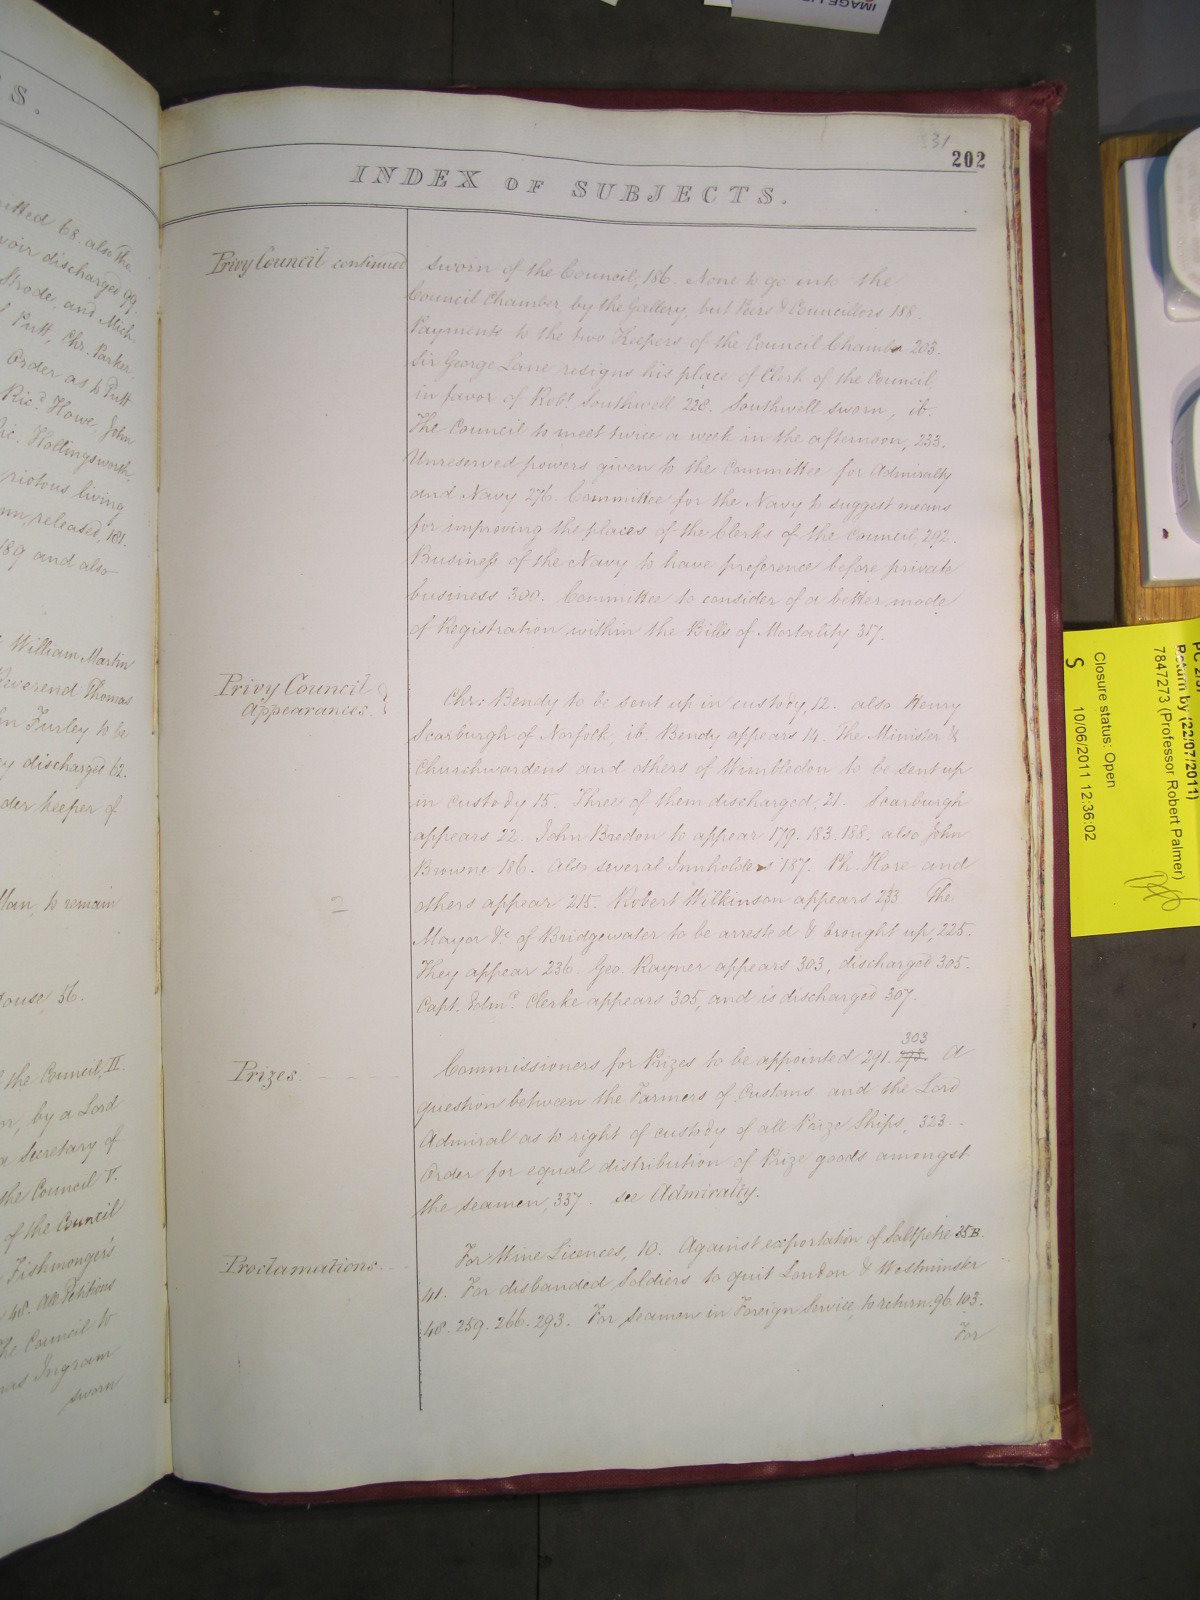 IMAGE LI
S.
itted 68. also the
voir discharged 99.
Strode, and Mich.
Putt, Chr. Parker,
Order as to Putt
Ricd. Howe, John
Ric. Hollingsworth,
riotous living
released, 181.
189 and also
William Martin
Reverend Thomas
Turley to be
discharged 62.
der keeper of
Man, to remain
House, 56.
the Council, II.
or, by a Lord
a Secretary of
the Council V.
of the Council
Fishmonger's
48. All Petitions
The Council to
Ingram
sworn
31
202
INDEX OF SUBJECTS.
Privy Council continued
sworn of the Council, 186. None to go into the
Council Chamber, by the Gallery, but Peers & Councillors 188.
Payments to the two Keepers of the Council Chamber 203.
Sir George Lane resigns his place of Clerk of the Council
in favor of Robt. Southwell 228. Southwell sworn, ib.
The Council to meet twice a week in the afternoon, 233.
Unreserved powers given to the Committee for Admiralty
and Navy 276. Committee for the Navy to suggest means
for improving the places of the Clerks of the Council, 292.
Business of the Navy to have preference before private
business 300. Committee to consider of a better mode
of Registration within the Bills of Mortality 317.
Privy Council
Appearances.
Chr: Bendy to be sent up in custody, 12. also Henry
Scarburgh of Norfolk, ib. Bendy appears 14. The Minister &
Churchwardens and others of Wimbledon to be sent up
in custody 15. Three of them discharged, 21. Scarburgh
appears 22. John Bredon to appear 179. 183. 188. also John
Browne 186. Also several Innholders 187. Ph. Hore and
others appear 215. Robert Wilkinson appears 233. The
Mayor &c. of Bridgewater to be arrested & brought up, 225.
They appear 236. Geo. Rayner appears 303, discharged 305.
Capt. Edmd. Clerke appears 305, and is discharged 307.
2
Prizes.
303
Commissioners for Prizes to be appointed 291. A
question between the Farmers of Customs and the Lord
Admiral as to right of custody of all Prize Ships, 323.
Order for equal distribution of Prize goods amongst
the seamen, 337. see Admiralty.
Proclamations.
For Wine Licences, 10. Against exportation of Saltpetre 35B
41. For disbanded Soldiers to quit London & Westminster
48. 259. 266. 293. For Seamen in Foreign Service, to return. 96. 103.
For
PC 2/5
Return by (22/07/2011)
7847273 (Professor Robert Palmer)
Closure status: Open
10/06/2011 12:36:02
S